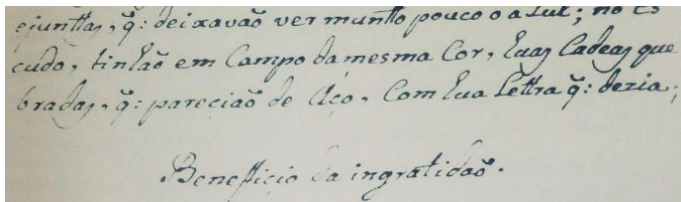 ejunttas, q̃: deixavão ver muntto pouco o aSul; no Es
cudo, tinhão em Campo damesma Cor, huas Cadeas que
bradas, q̃: pareçião de Aço, Com hua Lettra q̃: dezia;
Beneficio da ingratidaõ.